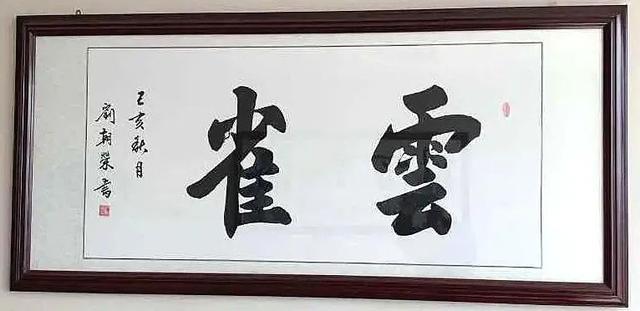 雲雀
己亥秋月
劉朝榮書